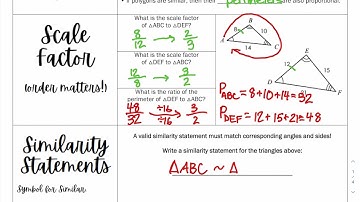 • If polygons are similar, then their perimeters are also proportional.
Scale
Factor
(order matters!)
What is the scale factor
of △ABC to △DEF?
8/12 → 2/3
What is the scale factor
of △DEF to △ABC?
12/8 → 3/2
What is the ratio of the
perimeter of △DEF to △ABC?
48/32 ÷16/÷16 → 3/2
B
8
10
A
14
C
E
12
15
D
21
F
P ABC = 8+10+14=32
P DEF = 12+15+21=48
Similarity
Statements
Symbol for Similar
A valid similarity statement must match corresponding angles and sides!
Write a similarity statement for the triangles above:
△ABC ~ △